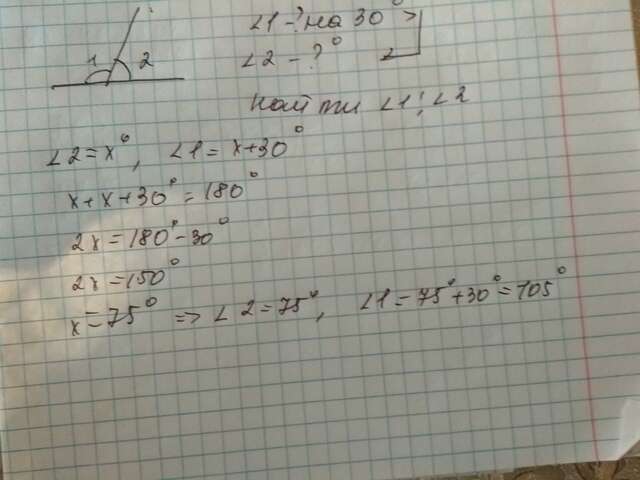 ∠1 - ? на 30° >
1 2
∠2 - ?°
найти ∠1; ∠2
∠2 = x°, ∠1 = x+30°
x + x + 30° = 180°
2x = 180° - 30°
2x = 150°
x = 75° => ∠2 = 75°, ∠1 = 75° + 30° = 105°